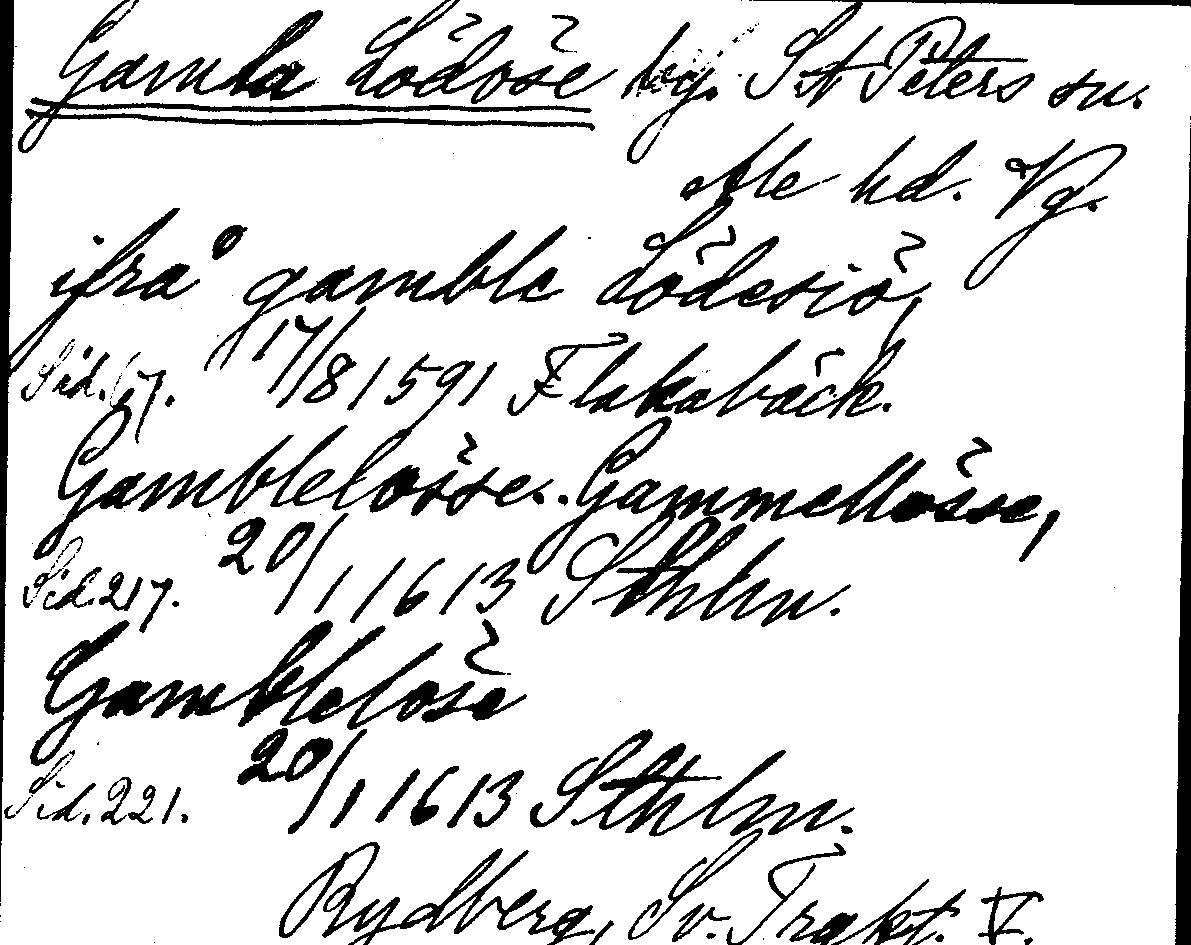 Gamla Lödöse by. St Peters sn.
Ale hd. Vg.
ifrå gamble Lödesiö,
Sid. 67. 17/8 1591 Flakabäck.
Gamblelösse. Gammellösse,
Sid. 217. 20/1 1613 Sthlm.
Gamblelöse
Sid. 221. 20/1 1613 Sthlm.
Rydberg, Sv. Trakt. V.